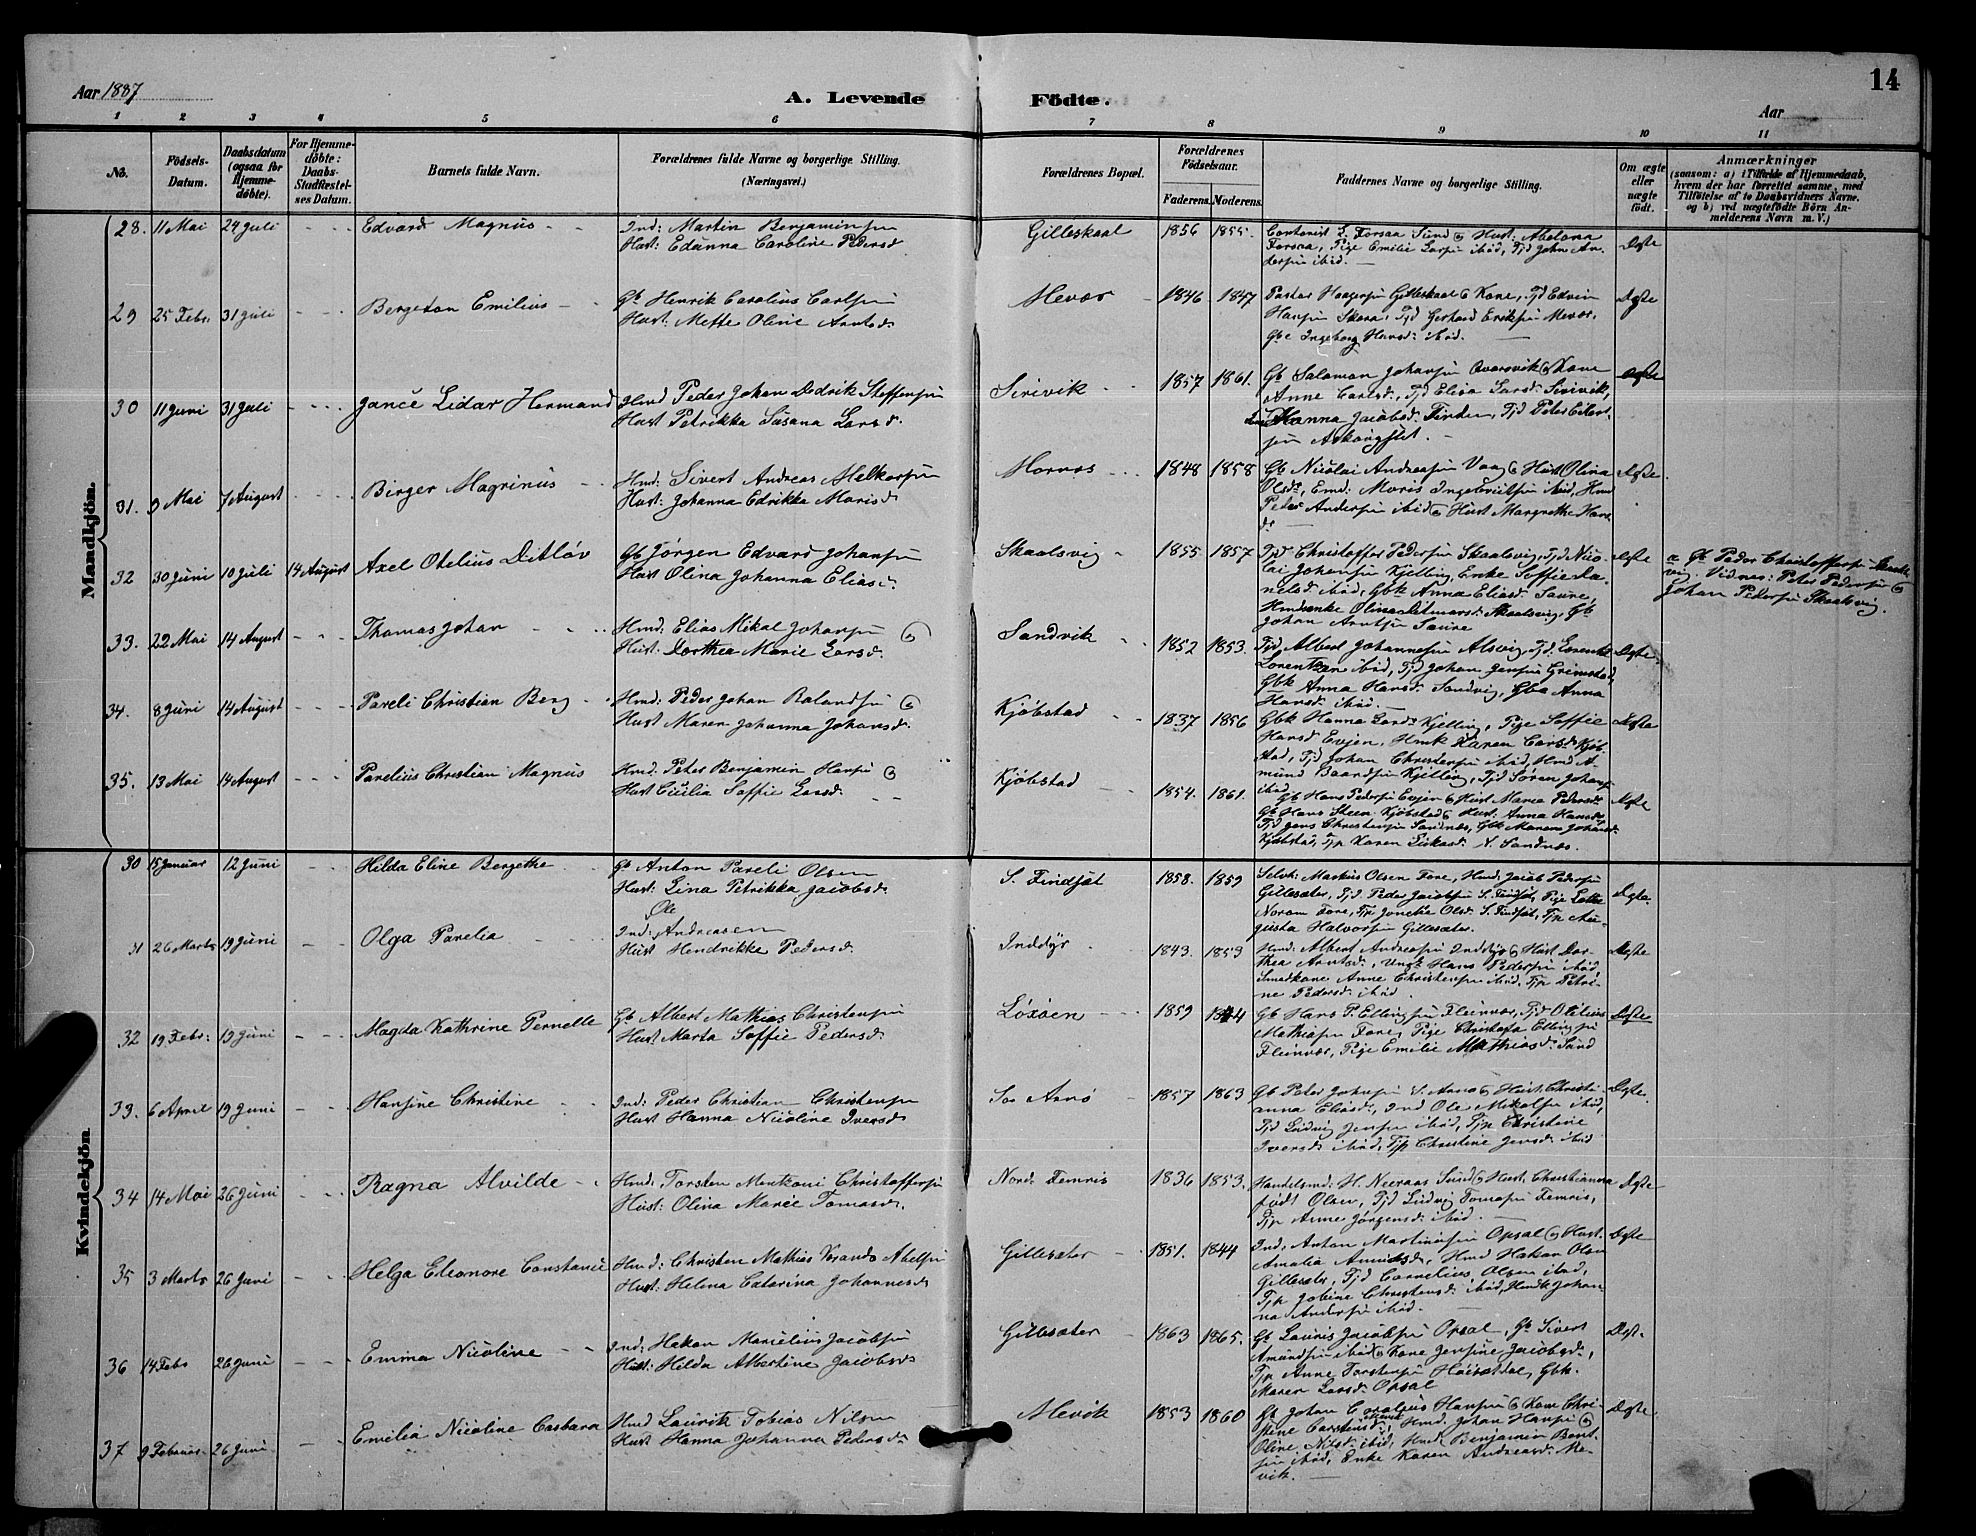 14
Aar 1887
A. Levende Födte.
Aar
1 2 3 4 5 6 7 8 9 10 11
No.
Födsels-Datum.
Daabsdatum (ogsaa for Hjemmedöbte).
For Hjemmedöbte: Daabs-Stadfæstelses Datum.
Barnets fulde Navn.
Forældrenes fulde Navne og borgerlige Stilling. (Næringsvei.)
Forældrenes Bopæl.
Forældrenes Födselsaar.
Faderens. Moderens.
Faddernes Navne og borgerlige Stilling.
Om ægte eller uægte födt.
Anmærkninger
(saasom: a) i Tilfælde af Hjemmedaab, hvem der har forrettet samme, med Tilföielse af to Daabsvidners Navne, og b) ved uægtefödte Börn Anmelderens Navn m. V.)
Mandkjön.
28. 11 Mai 24 Juli Edvard Magnus Ind: Martin Benjaminsen Gilleskaal 1856 1855. Ægte
Hust: Edanna Caroline Pedersd
29 25 Febr. 31 Juli Bergeton Emilius Gb Henrik Carolius Carlsen Mevær 1846 1847 Pastor Haagensen Gilleskaal & Kone, Tjd Edvin Ægte
Hust: Mette Oline Arntsd
Hansen Skora, Tjd Gerhard Eriksen Mevær,
Gbe Ingeborg Hansd: ibid.
30 11 Juni 31 Juli Jance Lidar Hermand Hmd Peder Johan Dedrik Steffensen Sirivik 1857 1861. Gb Salamon Johansen Qvarsvik & Kone Ægte
Hust Petrikka Susana Larsd.
Anne Carlsd:, Tjd Elisa Larsd: Sirivik,
31. 9 Mai 7 August Birger Magrinus Hmd: Sivert Andreas Melkersen Mornes 1848 1858 Gb Nicolai Andreasen Vaag & Hust Olina Ægte
Hust: Johanna Edrikka Marisd
Olsd:, Emd: Moris Ingebrietsen ibid, Hmd
Peder Andersen ibid & Hust Margrethe Hans
d:
32 30 Juni 10 Juli 14 August Axel Otelius Ditløv Gb Jørgen Edvard Johansen Skaalsvig 1855 1857 Tjd Christoffer Pedersen Skaalsvig, Tjd Nico- Ægte a Gb Peder Christoffersen Skaals
Hust Olina Johanna Eliasd
lai Johansen Kjelling, Enke Soffie Da-
vig. Vidner: Peter Pedersen &
nelsd ibid, Gbk Anna Eliasd: Saure,
Johan Pedersen Skaalsvig.
Johan Arntsen Saure
33. 22 Mai 14 August Thomas Johan Hmd: Elias Mikal Johansen & Sandvik 1852 1853. Tjd Albert Johannesen Alsvig, Tjd: Lorents Ægte
Hust: Dorthea Marie Larsd.
Lorentzen ibid, Tjd Johan Jensen Grimstad,
Gbk Anna Hansd: Sandvig, Gbe Anna
Hansd: ibid.
34. 8 Juni 14 August Pareli Christian Berg Hmd: Peder Johan Rolandsen & Kjøbstad 1837 1856 Gbk Hanna Larsd Kjelling, Pige Soffie Ægte
Hust Maren Johanna Johansd:
Hansd Evjen, Hmk Karen Larsd Kjøb-
stad, Tjd Johan Christensen ibid, Hmd A-
mund Baardsen Kjelling, Tjd Søren Johans
ibid
35. 13 Mai 14 August Parelius Christian Magnus Hmd: Peter Benjamin Hansen & Kjøbstad 1854. 1861. Gb Hans Pedersen Evjen & Hust Maren Pedersd: Ægte
Hust Cicilia Soffie Larsd:
Gb Hans Steen Kjøbstad & Hust: Anna Hansd:
Tjd Jens Christensen Sandnes, Gbk Maren Johansd
Kvindekjön
30 15 Januar 12 Juni Hilda Eline Bergethe Gb Anton Pareli Olsen S. Findsjøt 1858. 1859 Selvb: Markus Olsen Fore, Hmd: Jacob Pedersen Ægte
Hust: Lina Petrikka Jacobsd.
Gillesæter, Tjd: Peder Jacobsen S. Findsjøt, Pige Lotte
Norum Fore, Tjp Jonette Olsd: S. Findsjøt, Tjp Au-
gusta Halvorsen Gillesæter.
31 26 Marts 19 Juni Olga Parelia Ind: Ole Andreasen Inddyr 1843. 1853 Hmd: Albert Andreasen Inddyr & Hust Dor- Ægte
Hust Hendrikke Pedersd:
thea Arntsd:, Ungk: Hans Pedersen ibid
Smedkone Anne Christensen ibid, Tjp Petri-
ne Pedersd: ibid.
32 19 Febr: 19 Juni Magda Kathrine Pernelle Gb Albert Mathias Christensen Løxøen 1859 Gb Hans P. Ellingsen Fleinvær, Tjd Otelius Ægte
Hust Marta Soffie Pedersd:
Mathiasen Fore, Pige Christofa Ellingsen
Fleinvær, Pige Emelie Mathiasd: Sund
33. 6 April 19 Juni Hansine Christine Ind: Peder Christian Christensen So Arnø 1857 1863 Gb Peter Johnsen S. Arnø & Hust Christi- Ægte.
Hust Hanna Nicoline Iversd
anna Eliasd:, Ind Ole Mikalsen ibid,
Tjd Ludvig Jensen ibid, Tjp Christine
Iversd: ibid, Tjp Christine Jensd: ibid
34 14 Mai 26 Juni Ragna Alvilde Hmd: Torsten Mentzoni Christoffersen Nord. Femris 1836 1853. Handelsmd: H. Neeraas Sund & Hust. Christianna Ægte
Hust: Olina Marie Tomasd.
født Olsen, Tjd Ludvig Tomasen Femris,
Tjp Anne Jørgensd: ibid.
35 3 Marts 26 Juni Helga Eleonore Constance Hmd: Christen Mathias Korando Abelsen Gillesæter 1851. 1844 Ind: Anton Martinusen Opsal & Hust. Ægte
Hust: Helena Catarina Johannesd
Amalia Amundsd:, Hmd Hakan Olsen
Gillesæter, Tjd Cornelius Olsen ibid,
Tjp Jobine Christensd: ibid, Johan-
na Andersen ibid.
36 14 Febr 26 Juni Emma Nicoline Ind: Hakon Marcelius Jacobsen Gillesæter 1863 1865. Gb Lauris Jacobsen Opsal, Gb Sivert Ægt.
Hust: Hilda Albertine Jacobsd
Amundsen ibid & Kone Jensine Jacobsd:,
Maren Larsd: Opsal
37 9 Februar 26 Juni Emelia Nicoline Casbara Hmd Laurits Tobias Nilsen Mevik 1853 1860 Gb Johan Coralius Hansen & Kone Chri- Ægte
Hust Hanna Johanna Pedersd:
stine Carstensd: Mevik, Hmd. Johan Hansen &
Oline Nilsd: ibid, Hmd Benjamin Bent-
sen ibid, Enke Karen Andreasd: Me-
vik.